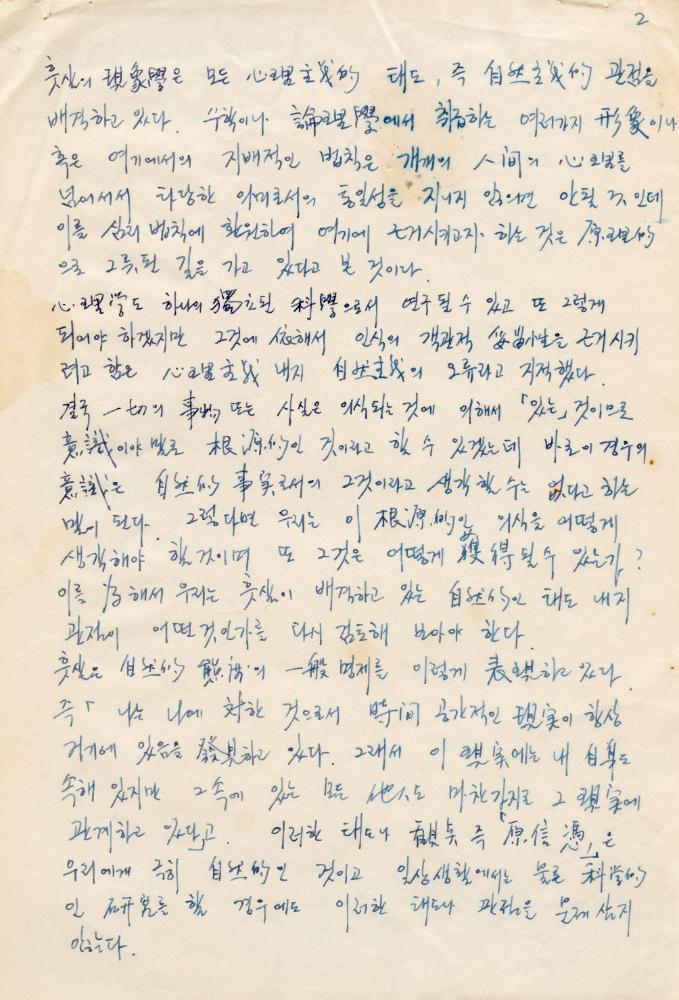 2
훗설의 現象學은 모든 心理主義的 태도, 즉 自然主義的 관점을
배격하고 있다. 수학이나 論理學에서 취급하는 여러가지 形象이나
혹은 여기에서의 지배적인 법칙은 개개의 人间의 心理를
넘어서서 타당한 의미로서의 통일성을 지니지 않으면 안될 것인데
이를 심리법칙에 환원하여 여기에 근거시키고자 하는 것은 原理的
으로 그릇된 길을 가고 있다고 본 것이다.
心理学도 하나의 獨立된 科學으로서 연구될 수 있고 또 그렇게
되어야 하겠지만 그것에 依해서 인식의 객관적 妥當性을 근거시키
려고 함은 心理主義 내지 自然主義의 오류라고 지적했다.
결국 一切의 事物 또는 사실은 의식되는 것에 의해서 「있는」 것이므로
意識이야 말로 根源的인 것이라고 할 수 있겠는데 바로 이 경우의
意識은 自然的 事実로서의 그것이라고 생각할 수는 없다고 하는
말이 된다. 그렇다면 우리는 이 根源的인 의식을 어떻게
생각해야 할 것이며 또 그것은 어떻게 獲得될 수 있는가?
이를 为해서 우리는 훗설이 배격하고 있는 自然的인 태도 내지
관점이 어떤 것인가를 다시 검토해 보아야 한다.
훗설은 自然的 態度의 一般 명제를 이렇게 表現하고 있다.
즉 「나는 나에 対한 것으로서 時间 공간적인 現実이 항상
거기에 있음을 發見하고 있다. 그래서 이 現実에는 내 自身도
속해 있지만 그 속에 있는 모든 他人도 마찬가지로 그 現実에
관계하고 있다」고. 이러한 태도나 観点 즉 「原信憑」은
우리에게 극히 自然的인 것이고 일상생활에서는 물론 科学的
인 研究를 할 경우에도 이러한 태도나 관점을 문제삼지
않는다.